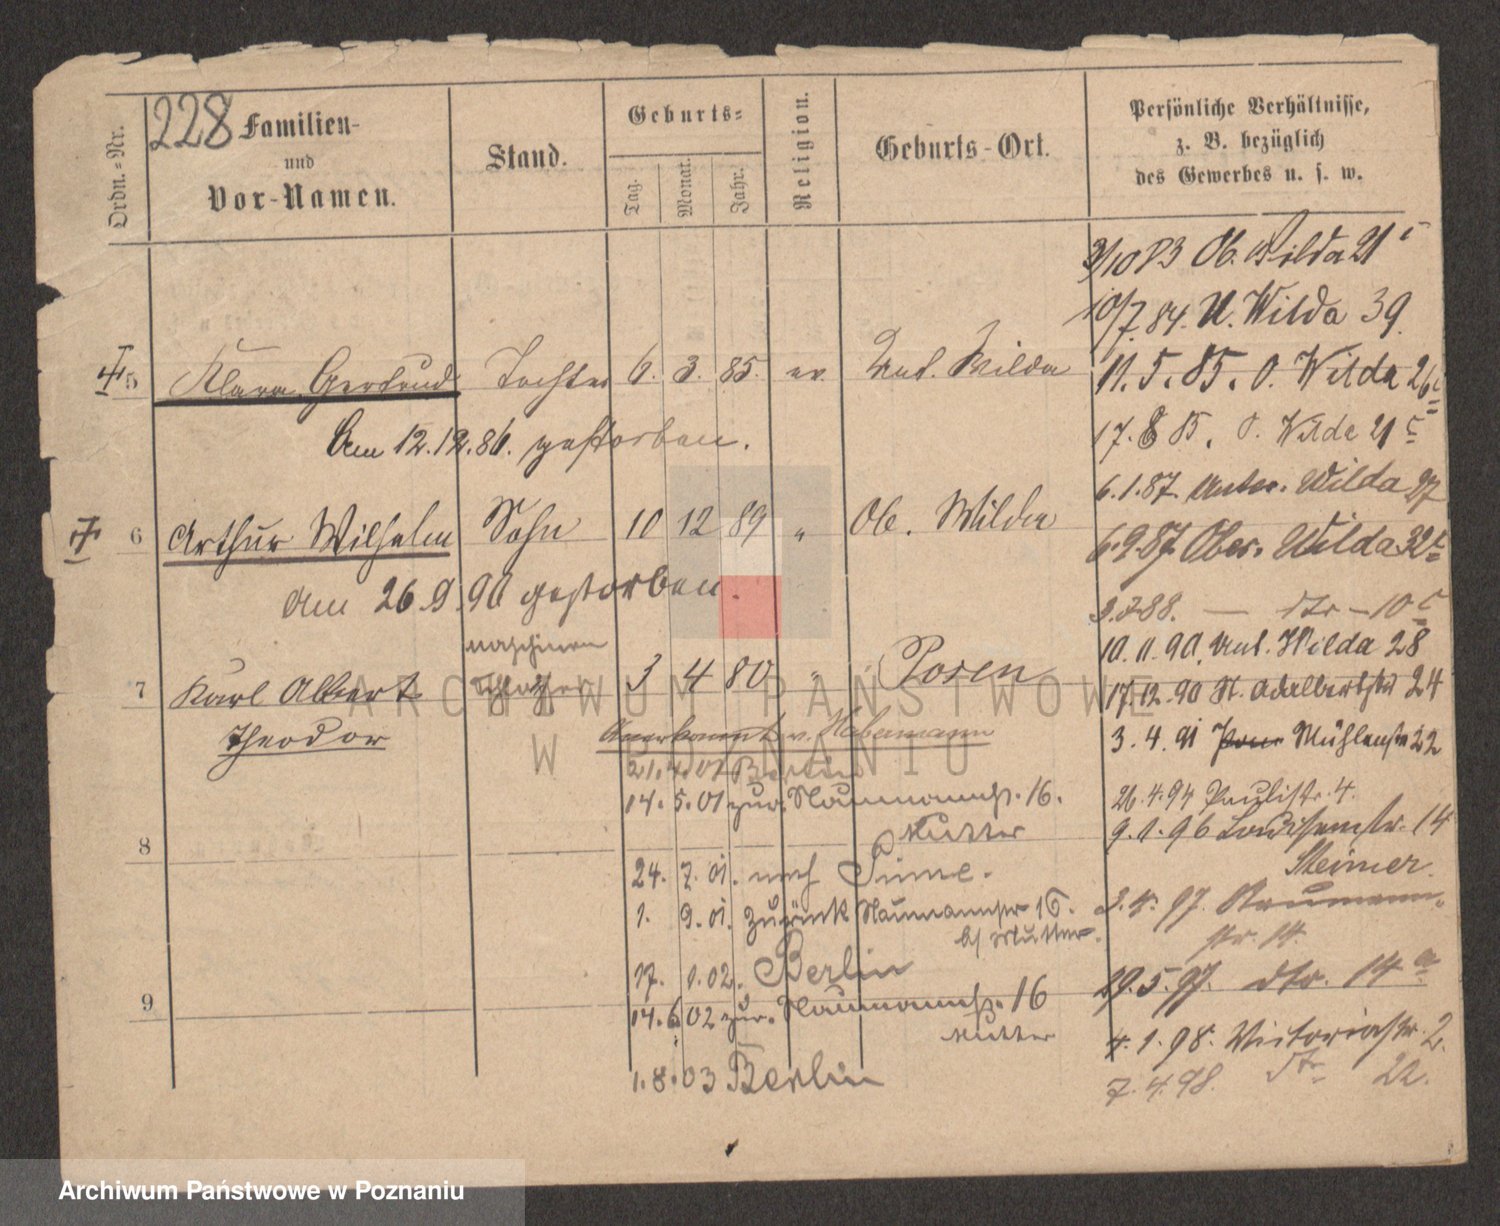 228
Ordn.-Nr.
Familien-
und
Vor-Namen.
Stand.
Geburts-
Tag.
Monat.
Jahr.
Religion.
Geburts-Ort.
Persönliche Verhältnisse,
z. B. bezüglich
des Gewerbes u. s. w.
3/10 83 Ob. Wilda 21 c
10/7. 84. U. Wilda 39.
5 Klara Gertrud Tochter 6. 3. 85. ev. Unt. Wilda
11. 5. 85. O. Wilda 26 c
Am 12.12.86. gestorben.
17. 8 85. O. Wilda 21 c
6.1.87. Unter. Wilda 27
6 Arthur Wilhelm Sohn 10 12 89 " Ob. Wilda
6.9.87 Ober. Wilda 32 c
am 26.9.90 gestorben.
3.7.88. — dto — 10 c
10.11.90. Unt. Wilda 28
Maschinen
7 Karl Albert Schlosser 3 4 80 " Posen
17.12.90 St. Adalbertstr 24
Theodor
Anerkannt v. Habermann
3.4.91 Mühlenstr 22
21.4.01 Berlin
14. 5. 01 zur. Naumannstr. 16.
Mutter
26.4.94 Paulistr. 4.
9.1.96 Louisenstr. 14
8
24. 7. 01. nach
Steimer.
1. 9. 01. zurück Naumannstr 16.
b/ Mutter.
3.4.97. Naumann-
str. 14.
17. 1.02. Berlin
29.5.97. dto. 14 a
9
14.6.02 zur. Naumannstr. 16
Mutter
4.1.98. Victoriastr. 2.
1.8.03 Berlin
7.4.98. dto 22.
ARCHIWUM PAŃSTWOWE
W POZNANIU
Archiwum Państwowe w Poznaniu